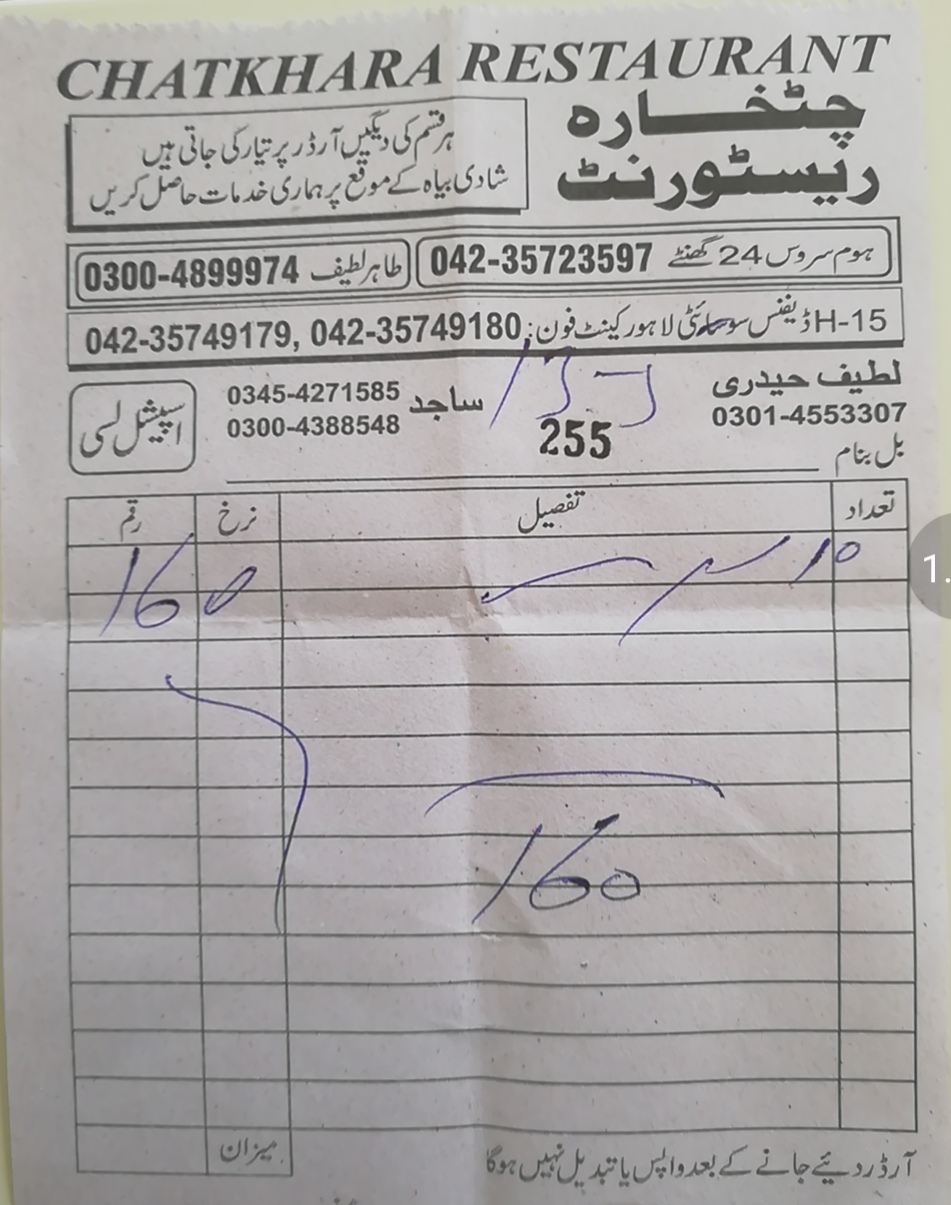 CHATKHARA RESTAURANT
چٹخارہ
ریسٹورنٹ
ہر قسم کی دیگیں آرڈر پر تیار کی جاتی ہیں
شادی بیاہ کے موقع پر ہماری خدمات حاصل کریں
ہوم سروس 24 گھنٹے 042-35723597
طاہر لطیف 0300-4899974
15-H ڈیفنس سوسائٹی لاہور کینٹ فون: 042-35749180, 042-35749179
لطیف حیدری
0301-4553307
ساجد 0345-4271585
0300-4388548
اسپیشل لسی
255
بل بنام
تعداد تفصیل نرخ رقم
10 160
160
میزان
آرڈر دیئے جانے کے بعد واپس یا تبدیل نہیں ہوگا
1.